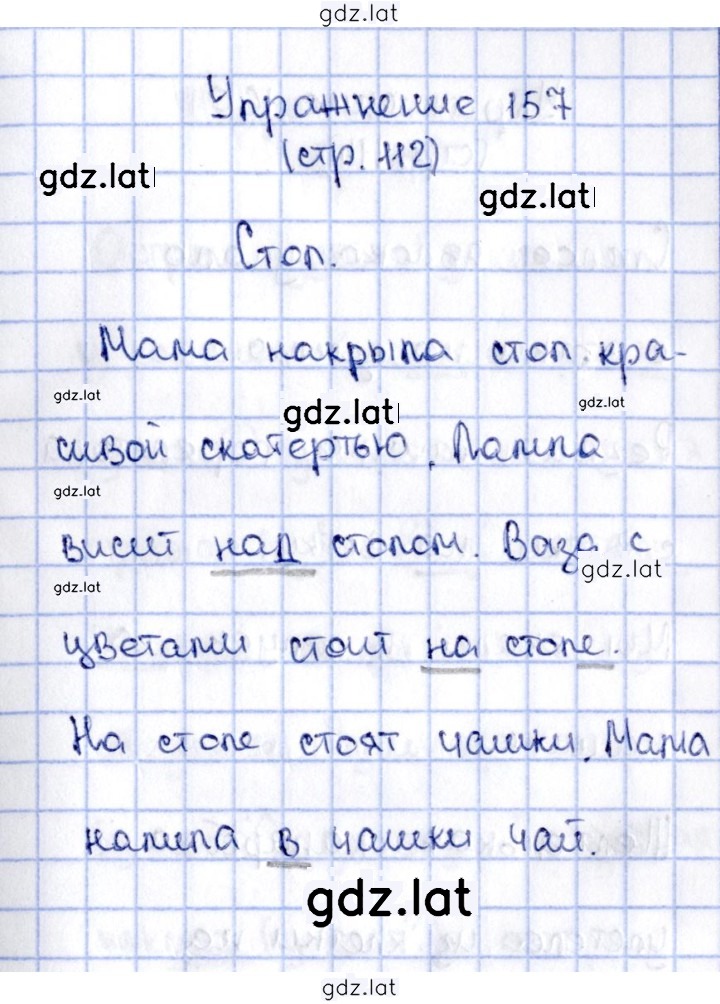 gdz.lat
Упражнение 157
(стр. 112)
gdz.lat
gdz.lat
Стол.
Мама накрыла стол кра-
gdz.lat
gdz.lat
gdz.lat
сивой скатертью. Лампа
gdz.lat
висит над столом. Ваза с
gdz.lat
gdz.lat
цветами стоит на столе.
На столе стоят чашки. Мама
налила в чашки чай.
gdz.lat
gdz.lat